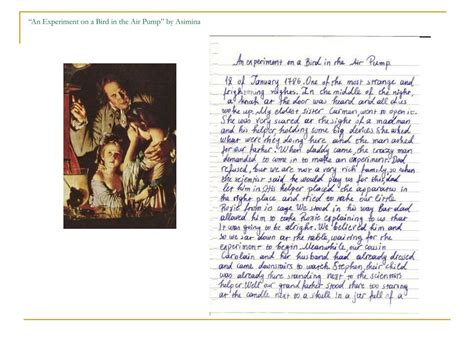 “An Experiment on a Bird in the Air Pump” by Asimina
An experiment on a Bird in the Air Pump
12 of January 1786. One of the most strange and
frightning nights. In the middle of the night,
a knock at the door was heard and all of us
woke up. My eldest sister Carmen went to open it.
She was very scared at the sight of a mad man
and his helper, holding some big devises. She asked
what were they doing here and the man asked
for our father. When daddy came, the crazy man
demanded to come in to make an experiment. Dad
refused, but we are not a very rich family, so when
the scientist said he would pay us for this dad
let him in. His helper placed the apparatus in
the right place and tried to take our little
Rosie from its cage. We stood in his way but dad
allowed him to take Rosie explaining to us that
it was going to be alright. We believed him and
so we sat down at the table, waiting for the
experiment to begin. Meanwhile, our cousin
Carolain and her husband had already dressed
and came downstairs to watch. Stephen, their child
was already there standing next to the scientist
helper. Well our grandfather stood there too staring
at the candle next to a skull in a jar full of a